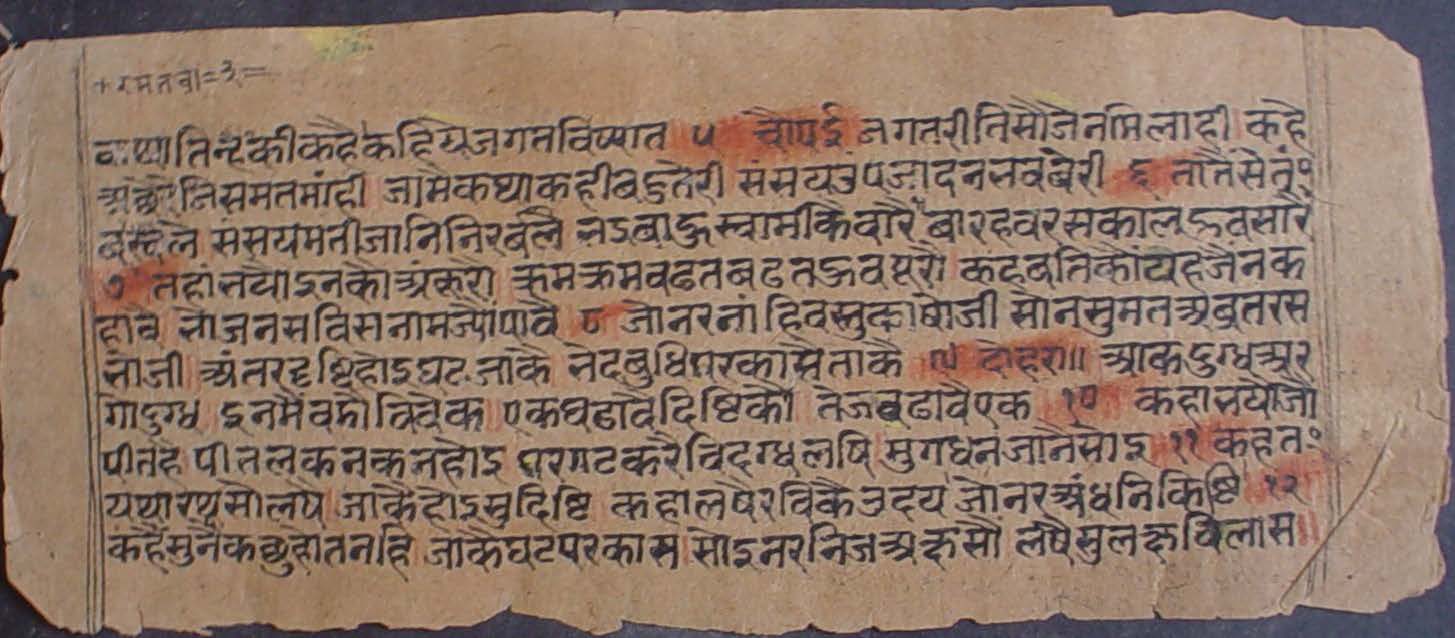 कथा तिन्ह की कहै कहियै जगत विष्यात ५ चौपई जगतरीति सौ जैन मिलाही कहै
अछेरे निसमत मांही जामै कथा कही बहुतेरी संसय उपजादन सब बेरी ६ तातै सेतं॰
संसयमती जानि निरबलै भद्रबाहु स्वामी कै वारै बारह वरस काल हुव सारै
७ तहां भयो इनकौ अंकूरो क्रम क्रम वढत बढत हुव पूरो कहबति कौं यह जैन क
हावै भोजन स विस नाम ज्यौं पावै ८ जो नर नांहि वस्तु का षोजी सो न सुमत अमृत रस
भोजी अंतर दृष्टि होइ घट जाकै भेद बुधि परकासै ताकै ९ दोहरा॥ आक दुग्ध अर
गो दुग्ध इनमै वडो विवेक एक घढावै दिष्टि कौ तेज बढावै एक १० कहा भयो जो
पीत है पीतल कनक न होइ परगट करै विदग्ध लषि मुगध न जानै सोइ ११ कहत॰
यथारथ सो लषै जाकै होइ सुदिष्टि कहा लषै रवि कै उदय जो नर अंध निकिष्टि १२
कहै सुनै कछु होत नहि जाकै घट परकास सोइ नर निज अछ सौ लषै सुलछ विलास॥